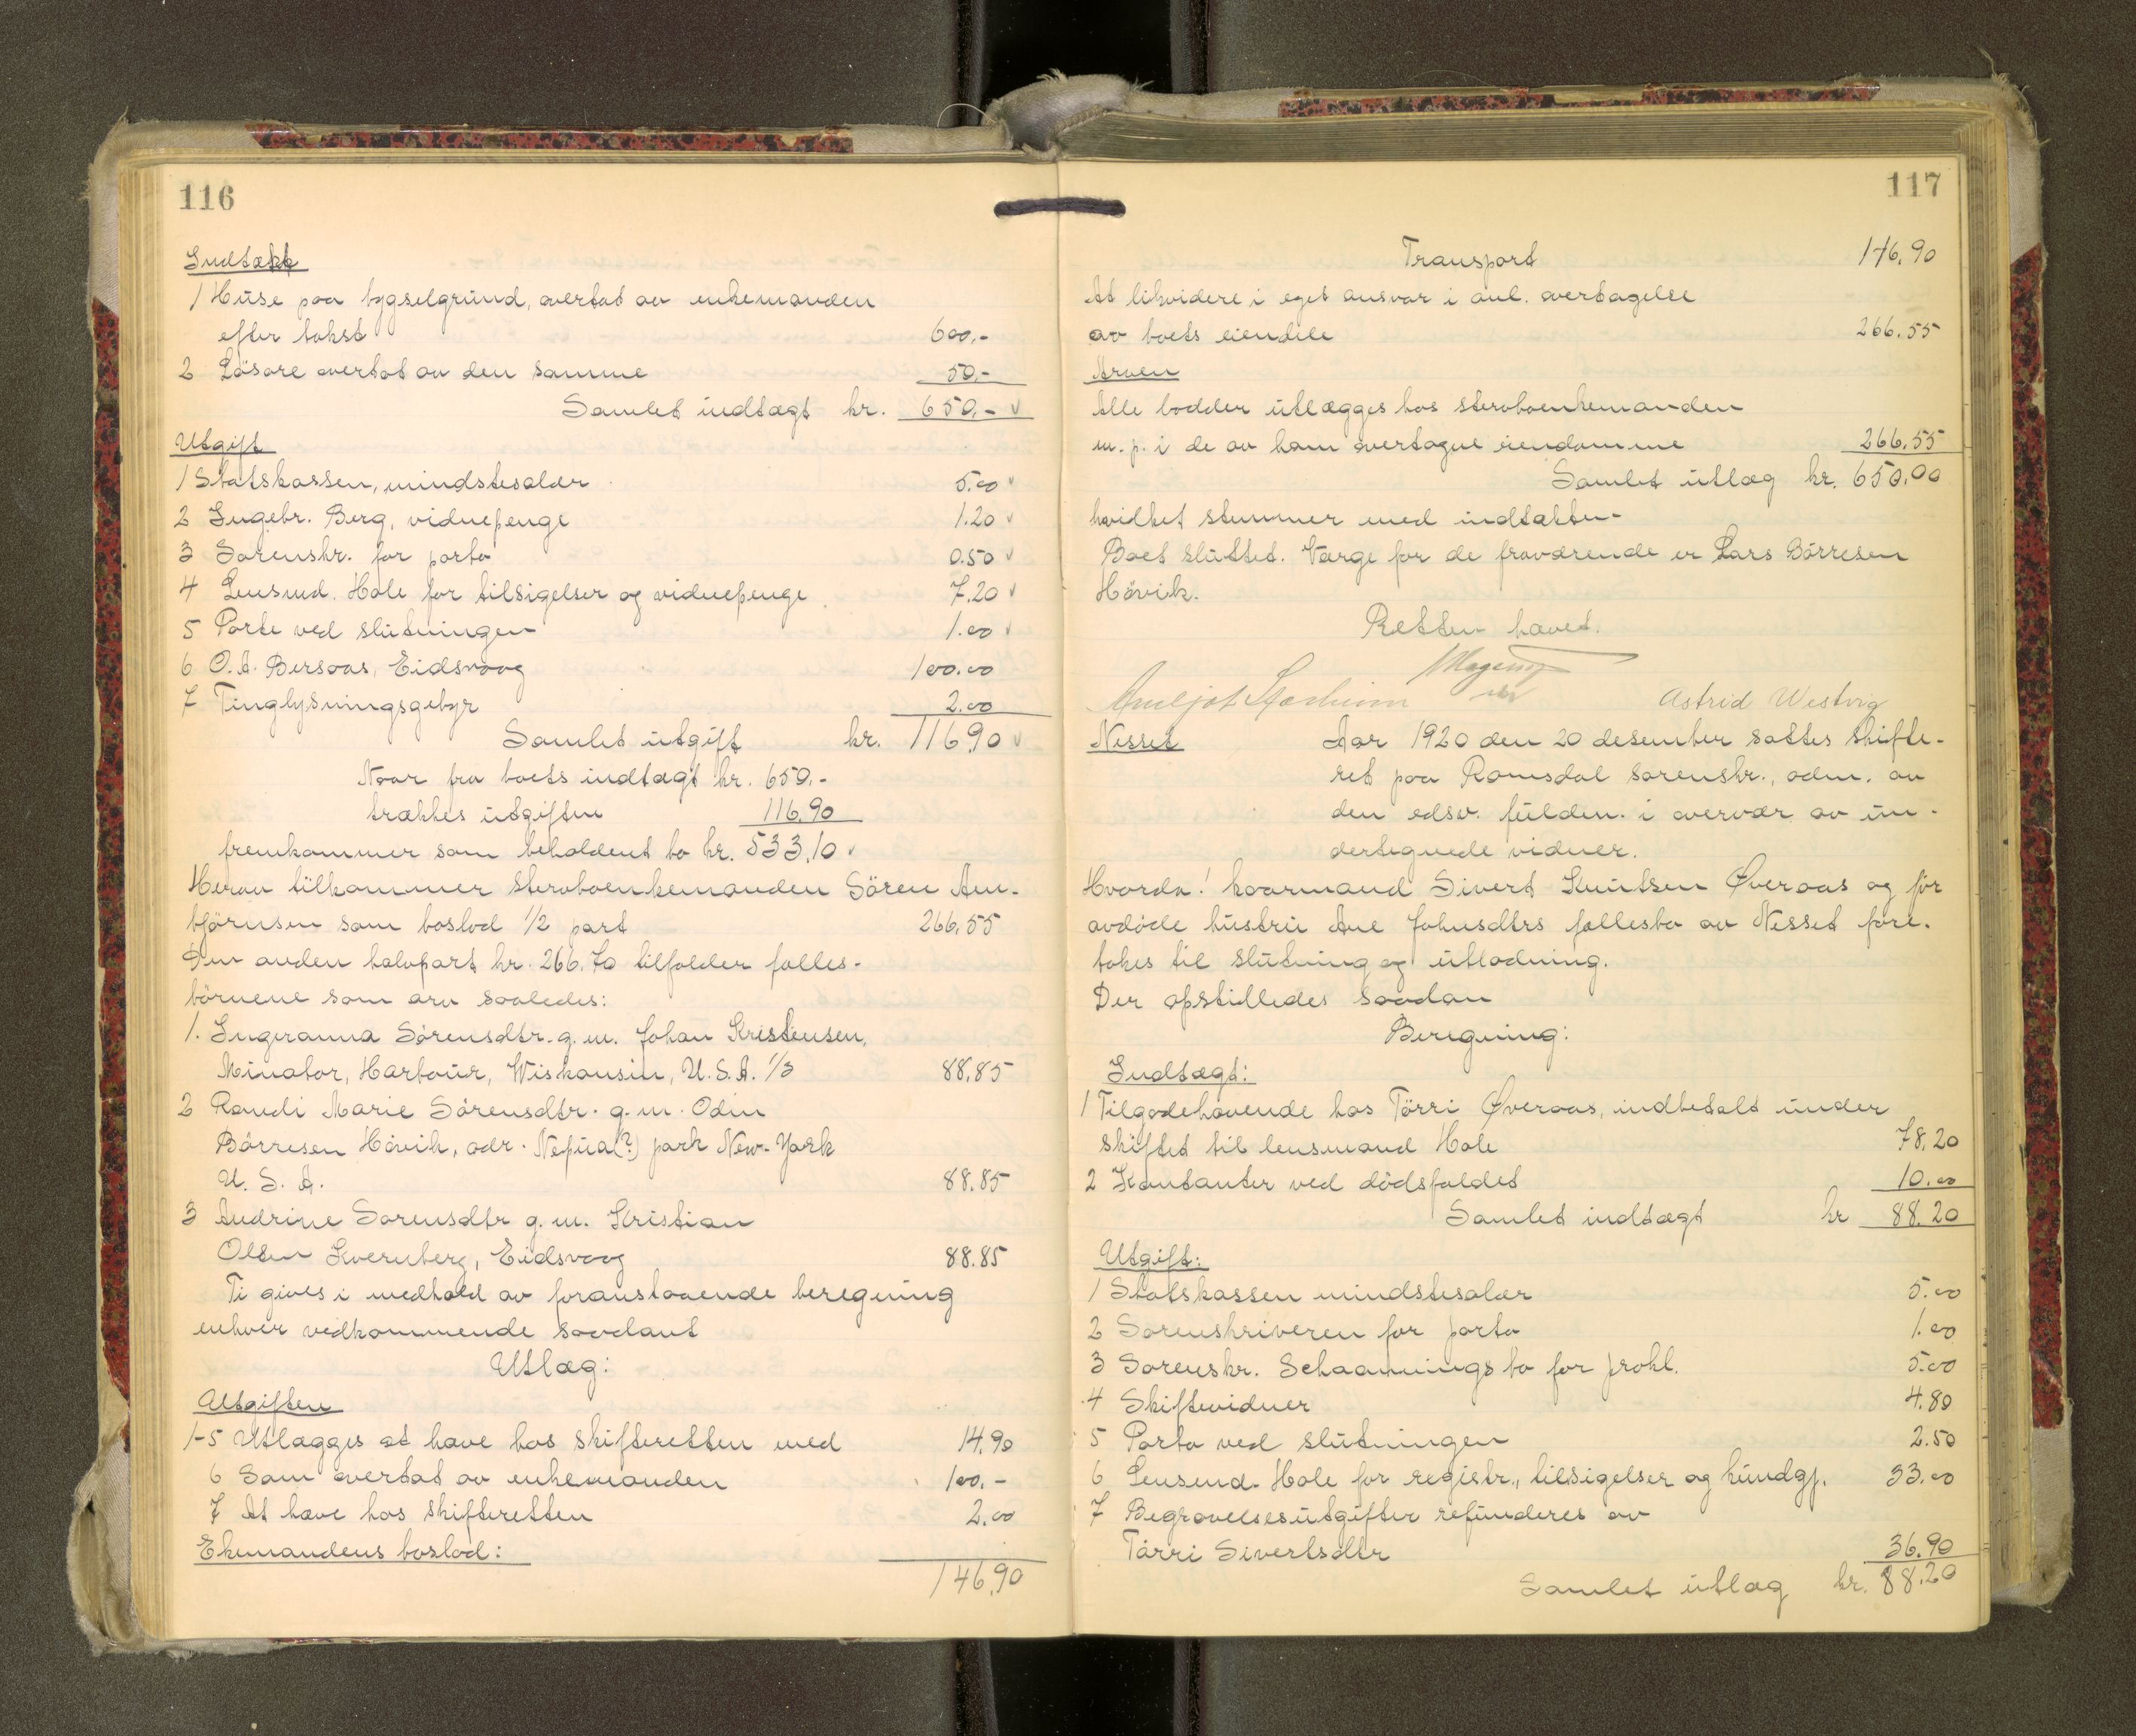 116
Indtækt
1 Huse paa bygselgrund, overtat av enkemanden
efter takst 600.-
2 Lösöre overtat av den samme 50.-
Samlet indtægt kr. 650.- √
Utgift
1 Statskassen, mindstesalær 5.00 √
2 Ingebr. Berg, vidnepenge 1.20 √
3 Sorenskr. for porto 0.50 √
4 Lensmd. Hole for tilsigelser og vidnepenge 7.20 √
5 Porto ved slutningen 1.00 √
6 O. A. Bersaas, Eidsvaag 100.00
7 Tinglysningsgebyr 2.00
Samlet utgift kr. 116.90 √
Naar fra boets indtægt kr. 650.-
trækkes utgiften 116.90
fremkommer som beholdent bo kr. 533.10 √
Herav tilkommer stervboenkemanden Sören Arn-
björnsen som boslod 1/2 part 266.55
Den anden halvpart kr. 266.70 tilfalder fælles-
börnene som arv saaledes:
1. Ingeranna Sörensdtr. g. m. Johan Kristensen,
Minator, Harbour, Wiskonsin, U. S. A. 1/3 88.85
2 Randi Marie Sörensdtr. g. m. Odin
Börresen Hövik, adr. Nepua(?) park New-York
U. S. A. 88.85
3 Andrine Sorensdtr g. m. Kristian
Olsen Kvernberg, Eidsvaag 88.85
Ti gives i medhold av foranstaaende beregning
enhver vedkommende saadant
Utlæg:
Utgiften
1-5 Utlægges at have hos skifteretten med 14.90
6 Som overtat av enkemanden 100.-
7 At have hos skifteretten 2.00
Ekemandens boslod:
146.90
117
Transport 146.90
At likvidere i eget ansvar i anl. overtagelse
av boets eiendele 266.55
Arven
Alle lodder utlægges hos stervboenkemanden
m. p. i de av ham overtagne eiendomme 266.55
Samlet utlæg kr. 650.00
hvilket stemmer med indtækten
Boet sluttet. Værge for de fraværende er Lars Börresen
Hövik.
Retten hævet.
Astrid Westvig
Nesset Aar 1920 den 20 desember sattes skifte-
ret paa Romsdal sorenskr., adm. av
den edsv. fuldm. i overvær av un-
dertegnede vidner.
Hvorda! kaarmand Sivert Knutsen Øveraas og för
avdöde hustru Ane Johnsdtrs fællesbo av Nesset fore-
tokes til slutning og utlodning.
Der opstilledes saadan
Beregning:
Indtægt:
1 Tilgodehavende hos Törri Øveraas, indbetalt under
skiftet til lensmand Hole 78.20
2 Kontanter ved dödsfaldet 10.00
Samlet indtægt kr 88.20
Utgift:
1 Statskassen mindstesalær 5.00
2 Sorenskriveren for porto 1.00
3 Sorenskr. Schaannings bo for prokl. 5.00
4 Skiftevidner 4.80
5 Porto ved slutningen 2.50
6 Lensmd. Hole for registr., tilsigelser og kundgj. 33.00
7 Begravelsesutgifter refunderes av
Törri Sivertsdtr 36.90
Samlet utlæg kr. 88.20